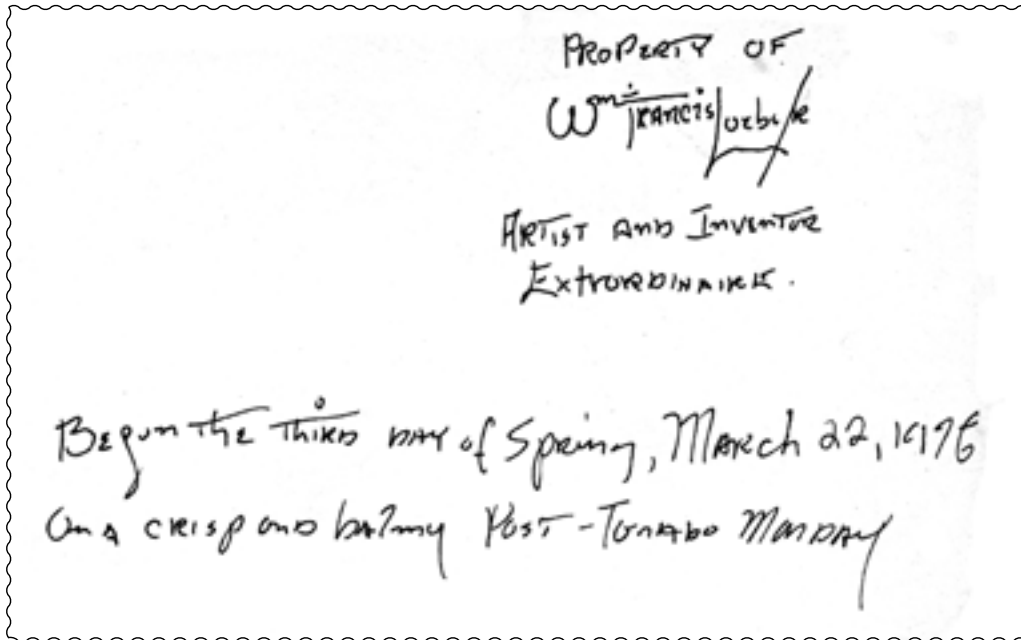 PROPERTY OF
Wm Francis
ARTIST AND INVENTOR
EXTRAORDINAIRE.
Begun the third day of Spring, March 22, 1976
On a crisp and balmy Post-Tornado Monday